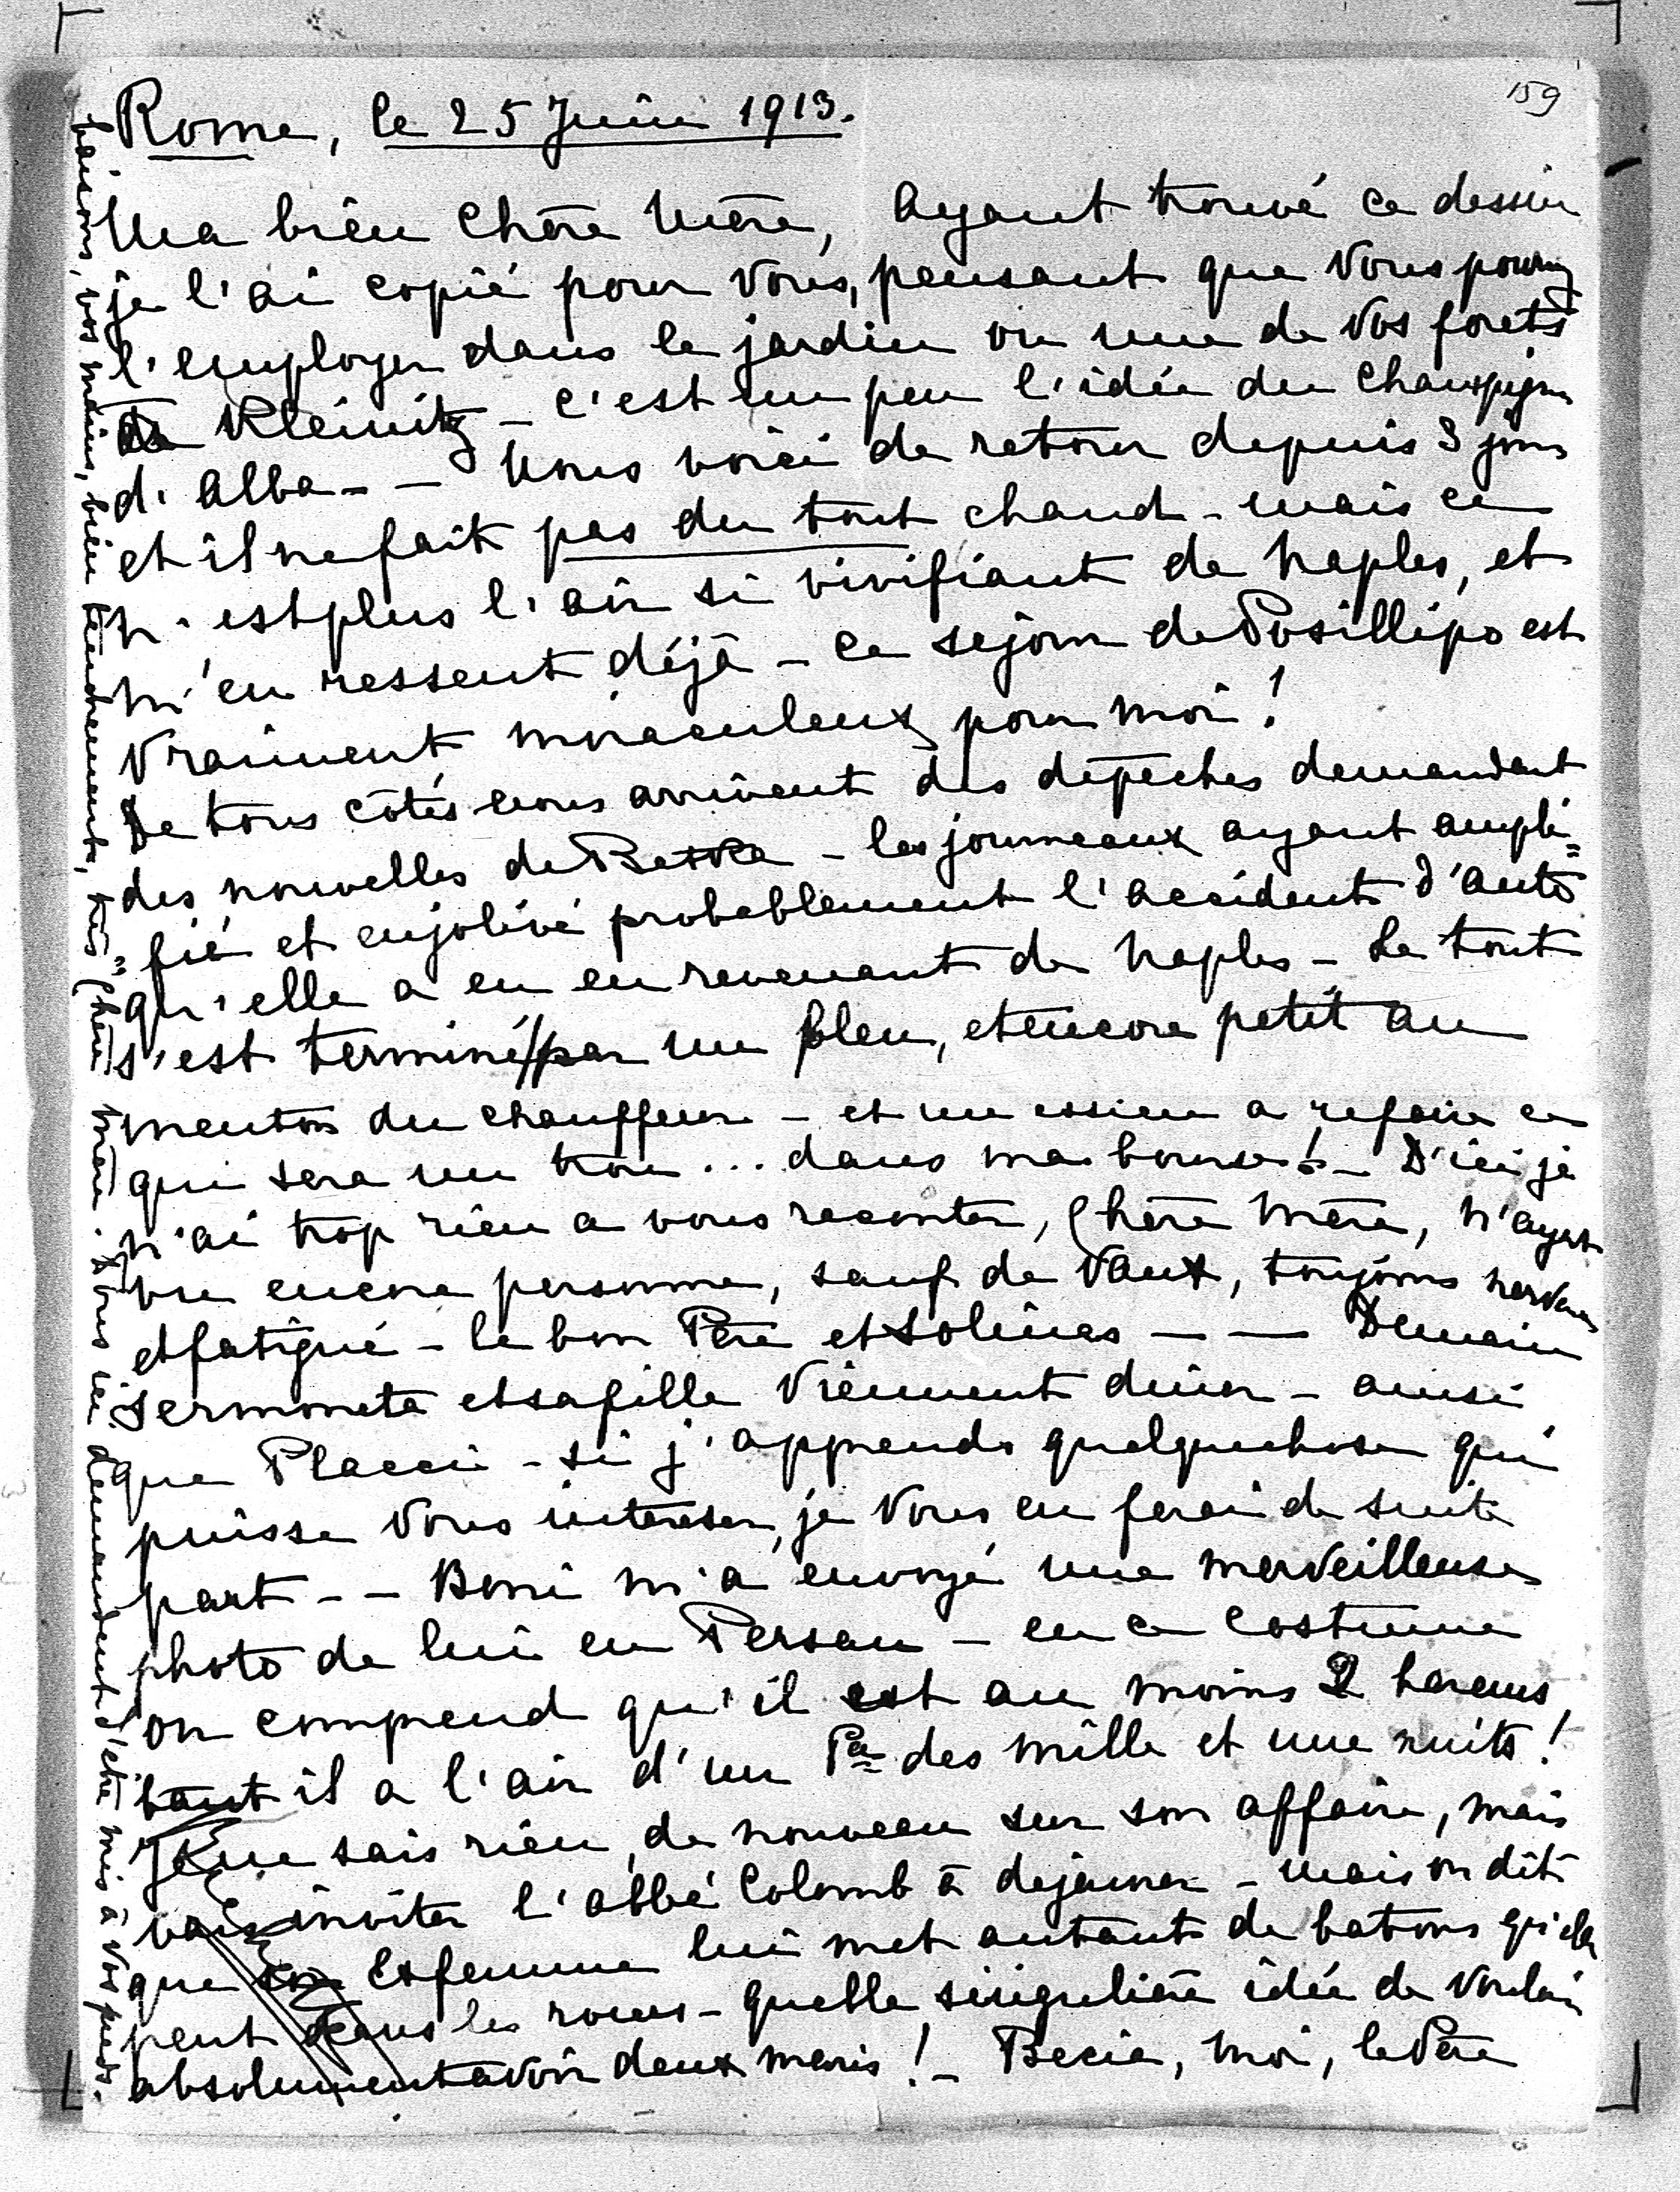 159
Rome, le 25 Juin 1913.
Ma bien Chère Mère, Ayant trouvé ce dessin
je l'ai copié pour Vous, pensant que Vous pourriez
l'employer dans le jardin ou une de Vos forets
de Kleinitz - C'est un peu l'idée du Champignon
d'Alba - - Nous voici de retour depuis 3 jours
et il ne fait pas du tout chaud - mais ce
n'est plus l'air si vivifiant de Naples, et
m'en ressent déjà - Ce sejour de Posillipo est
Vraiment miraculeux pour moi !
De tous côtés nous arrivent des dépêches demandant
des nouvelles de - les journeaux ayant ampli=
"fié et enjolivé probablement l'accident d'auto
qu'elle a eu en revenant de Naples - Le tout
s'est terminé par un bleu, et encore petit au
menton du chauffeur - et un essieu a refaire ce
qui sera un trou ... dans ma bourse ! - D'ici je
n'ai trop rien a vous raconter, Chère Mère, N'ayant
vu encore personne, sauf de Vaux, toujours nerveux
et fatigué - le bon Père et Solinas - - Demain
Sermoneta et sa fille Viennent diner - ainsi
que Placci - si j'apprends quelquechose qui
puisse Vous interesser, je Vous en ferai de suite
part - - Boni m'a envoyé une merveilleuse
photo de lui en Persan - en ce Costume
on comprend qu'il est au moins 2 harems
tant il a l'air d'un Pce des mille et une nuits !
Je ne sais rien de nouveau sur son affaire, mais
vais inviter l'abbé Colomb à dejeuner - mais on dit
que Exfemme lui met autant de batons qu'elle
peut dans les roues - quelle singulière idée de vouloir
absolument avoir deux maris ! - Becia, moi, le Père
baisons, vos mains, bien tendrement, très Chère Mère. Tous ici demandent d'être mis à Vos pieds.